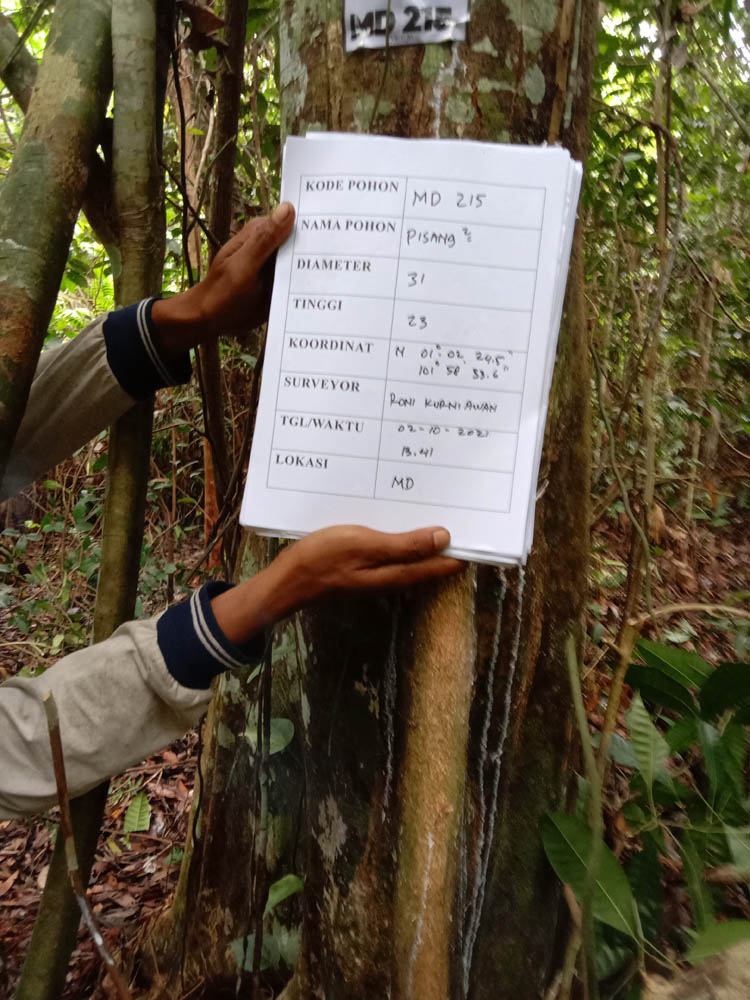 MD 215
KODE POHON MD 215
NAMA POHON PISANG ²/₂
DIAMETER 31
TINGGI 23
KOORDINAT N 01° 02, 24.5"
101° 58 33.6"
SURVEYOR RONI KURNIAWAN
TGL/WAKTU 02-10-2021
13.41
LOKASI MD